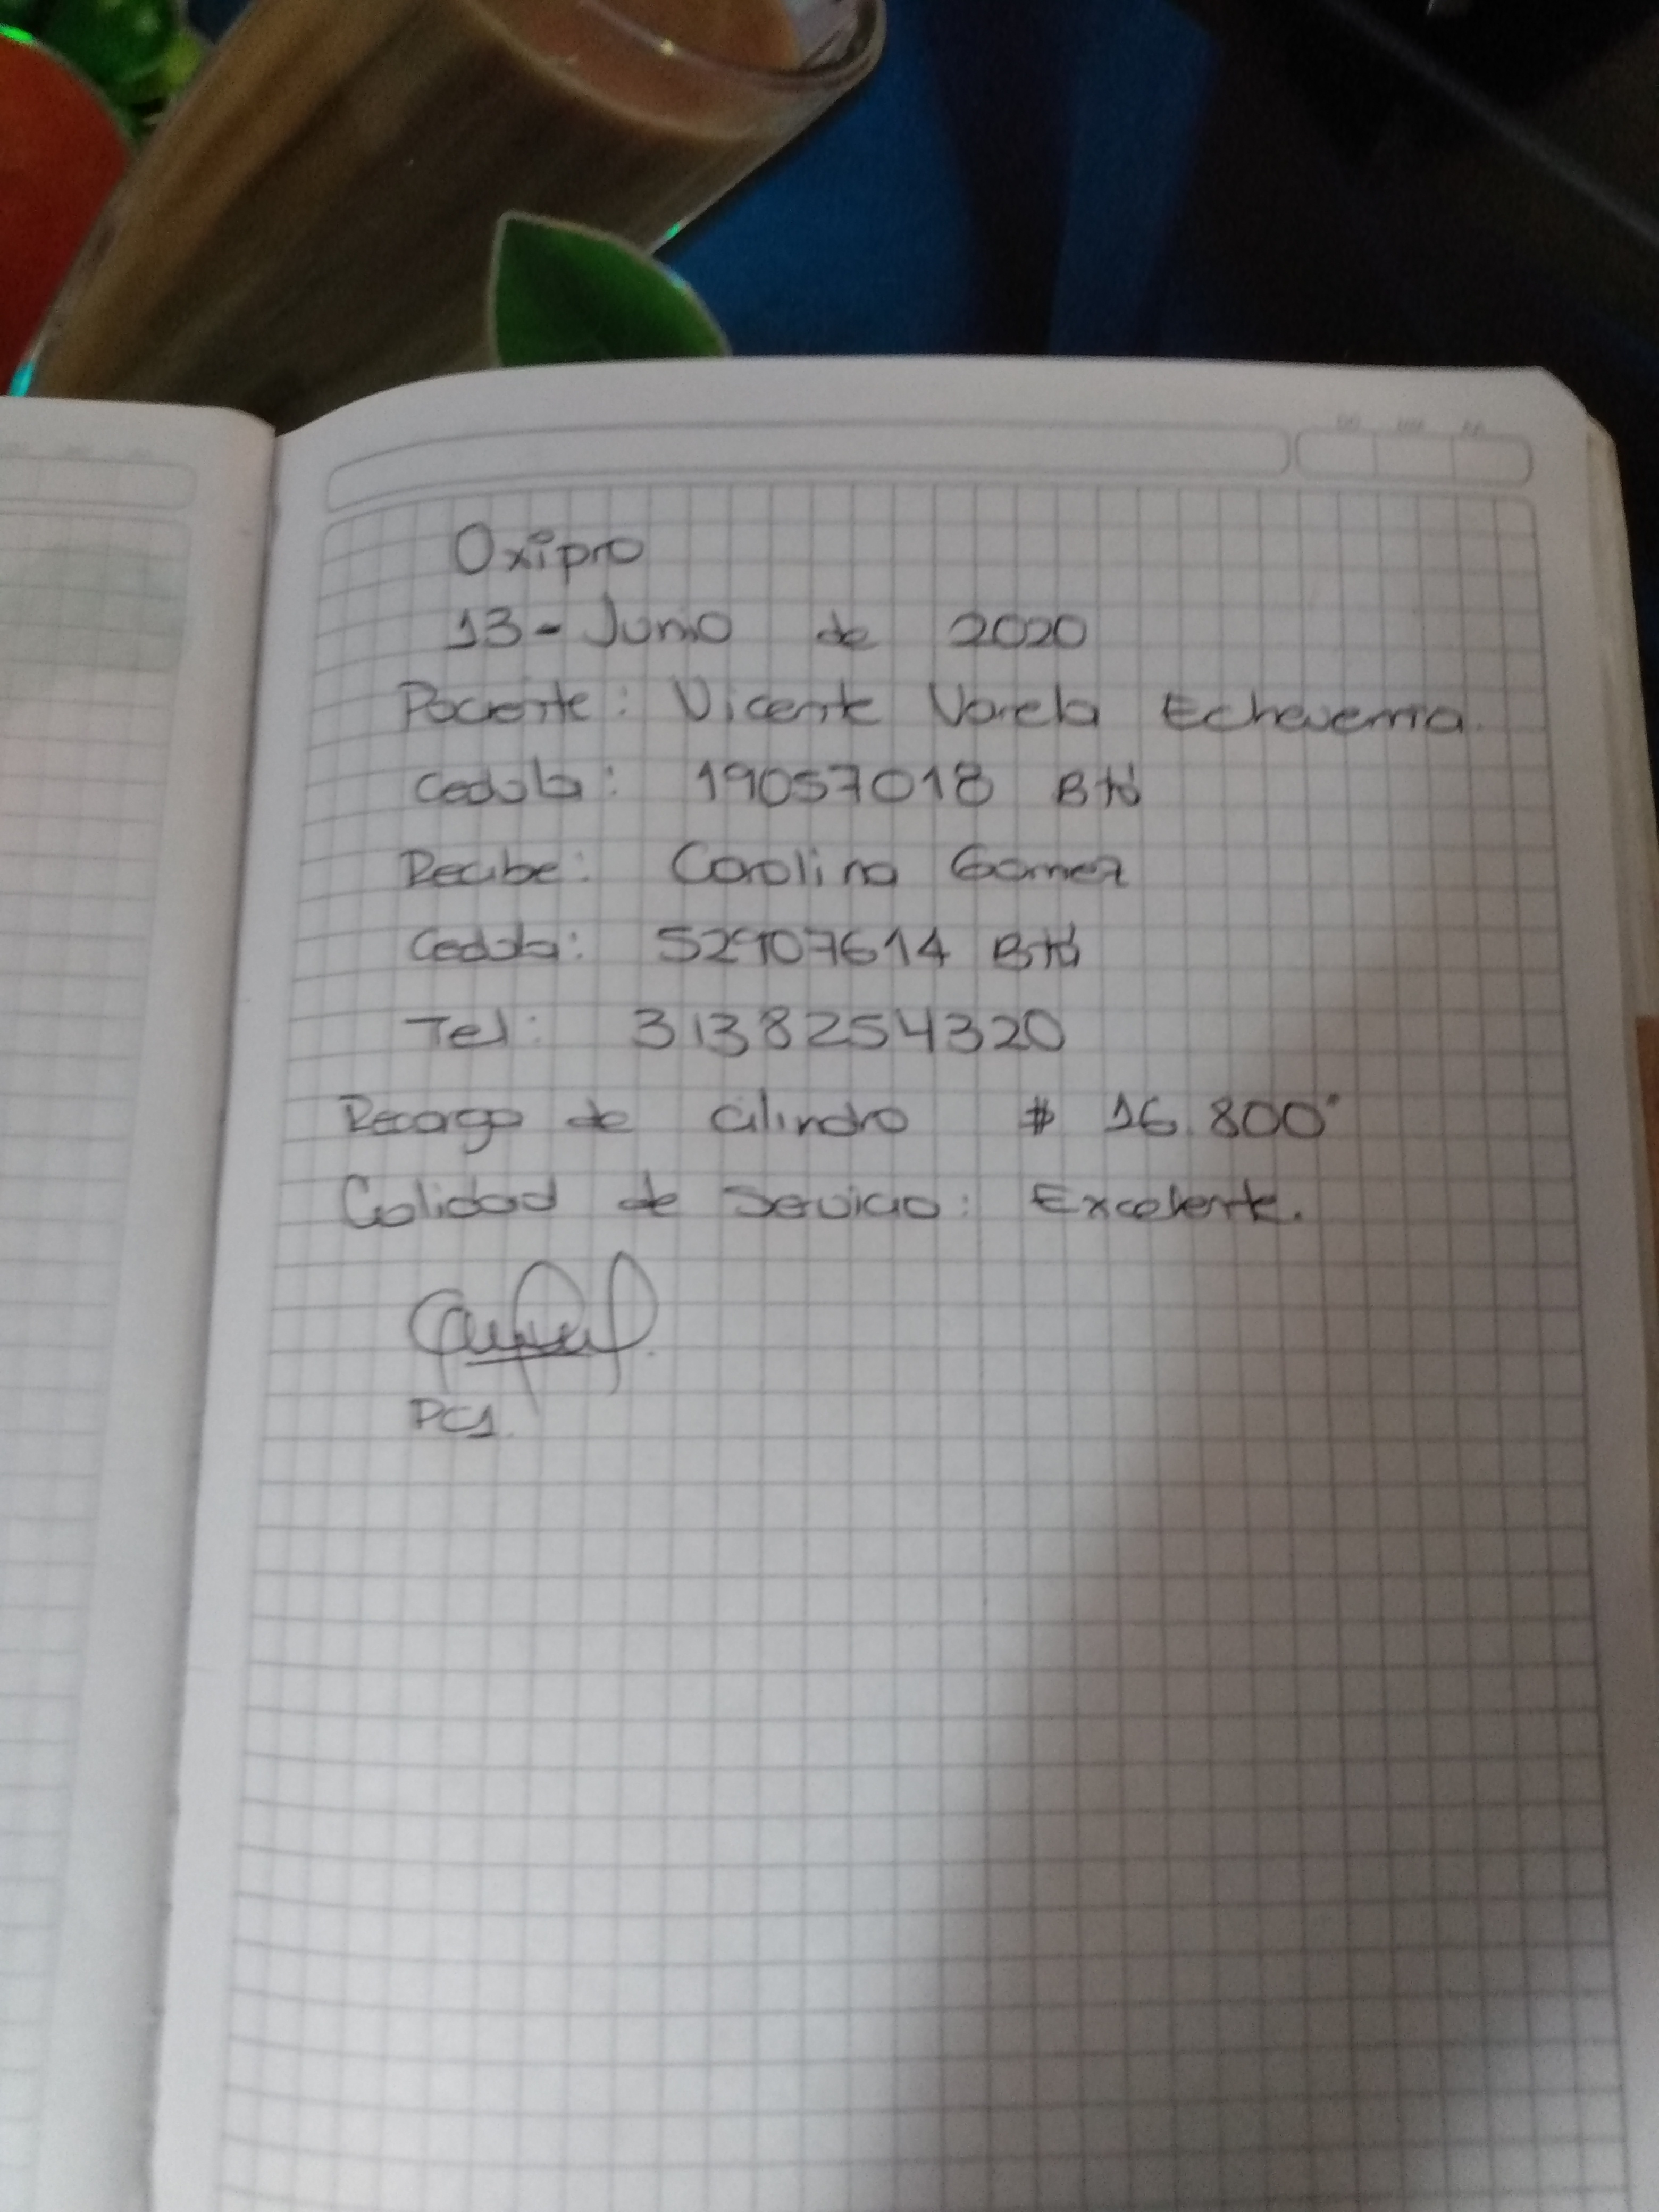 Oxipro
13-Junio de 2020
Paciente: Vicente Varela Echeverria.
Cedula: 19057018 Btá
Recibe: Carolina Gomez
Cedula: 52907614 Btá
Tel: 3138254320
Recarga de cilindro $ 16.800"
Calidad de Servicio: Excelente.
PC1.